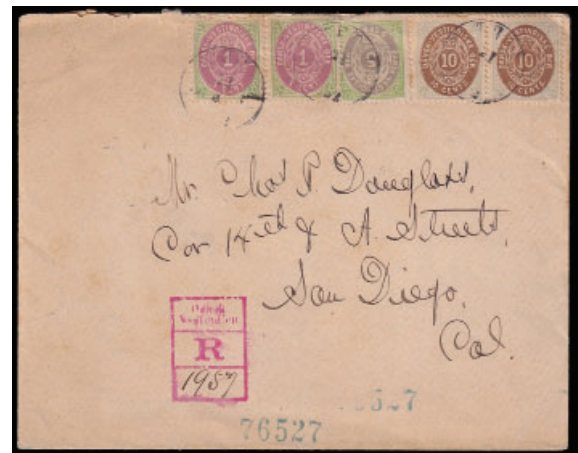 1 1 5 10 10
Mr. Chas P. Douglass,
Cor 14th & A. Streets,
San Diego,
Cal.
R
1957
527
76527